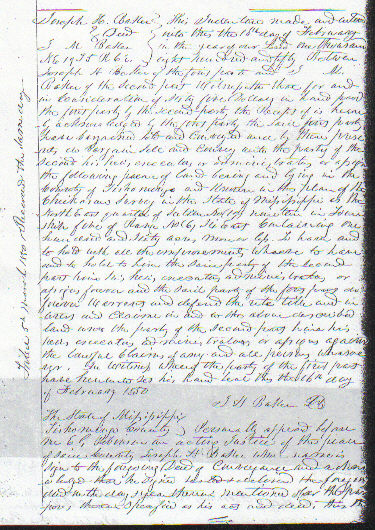 Joseph H. Baker } This Indenture made and entered
Deed } into this the 16th day of February
J M Baker } in the year of our Lord one thousand
} eight hundred and fifty Between
Joseph H Baker of the first part and J M
Baker of the second part Witnesseth that for and
in Consideration of Sixty five Dollars in hand paid
the first party by the second party the Receipt of is here
by acknowledged the first party the said first party
have bargained sold and conveyed and by these prese
nts, do bargain sell and Convey unto the party of the
second his heirs, executors or administrators or assigns
the following parcel of land being and lying in the
County of Tishomingo and Known in the plan of the
Chickasaw Survey in the State of Mississippi as the
North East quarter of Section No
ship five of Range No 6, East Containing one
hundred and sixty acres more or less To have and
to hold with all the improvements
and to hold to him the said party of the second
part his heirs, executors administrators or
assigns forever and the said party of the first part do
forever Warrant and defend the title
and Claims in and to the above described
land unto the party of the second part
heirs executors administrators, or assigns against
the Lawful Claims of any and all persons whatsoe
ver. In Witness Whereof the party of the first part
have hereunto set his hand seal this the 16th day
of February 1850
J H Baker
The State of Mississippi
Tishomingo County } Personally appeared before
me C G Robinson an acting Justice of the peace
of said County Joseph H Baker whose name is
sign to the foregoing Deed of Conveyance and acknow
ledged that he signed sealed & delivered the foregoing
deed on the day & year therein mentioned
as his act and deed, this
Filed 5th March 1850